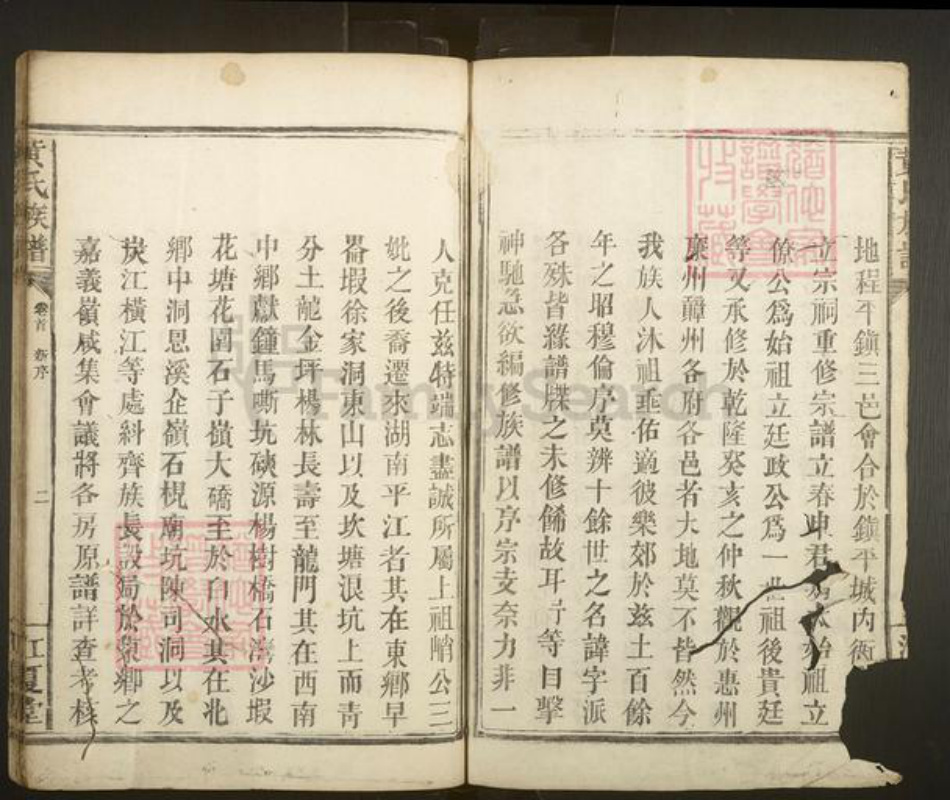 地程平鎮三邑會合於鎮平城內衙
立宗祠重修宗譜立春申君爲太始祖立
僚公爲始祖立廷政公爲一世祖後貴廷
等又承修於乾隆癸亥之仲秋觀於惠州
廉州贛州各府各邑者大地莫不皆然今
我族人沐祖垂佑適彼樂郊於茲土百餘
年之昭穆倫序莫辨十餘世之名諱字派
各殊皆緣譜牒之未修餙故耳等目擊
神馳急欲編修族譜以序宗支奈力非一
人克任茲特端志盡誠所屬上祖峭公三
妣之後喬遷來湖南平江者其在東鄉早
畨塅徐家洞東山以及坎塘浪坑上而靑
分土龍金坪楊林長壽至龍門其在西南
中鄉獻鐘馬嘶坑磺源楊樹橋石灣沙塅
花塘花園石子嶺大磽至於白水其在北
鄉中洞思溪企嶺石梘廟坑陳司洞以及
炭江橫江等處糾齊族長設局於東鄉之
嘉義嶺咸集會議將各房原譜詳查考核
黃氏族譜
卷首 新序
二
江夏堂
FamilySearch